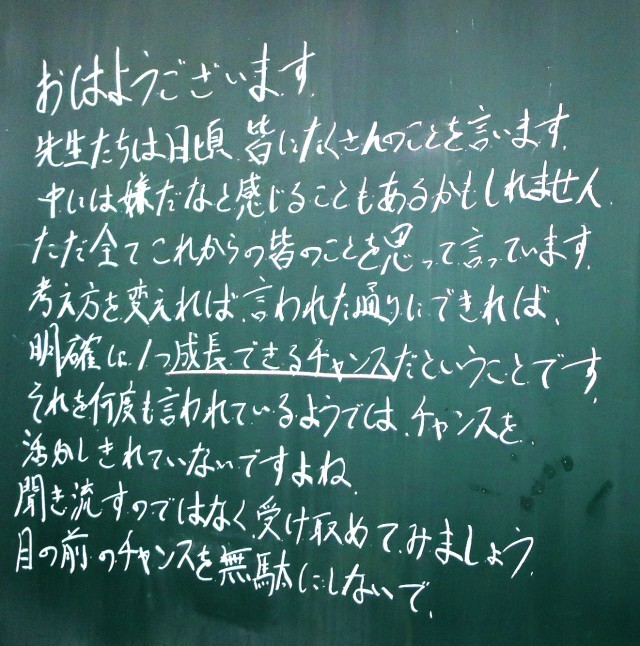 おはようございます。
先生たちは日頃、皆にたくさんのことを言います。
中には嫌だなと感じることもあるかもしれません。
ただ全てこれからの皆のことを思って言っています。
考え方を変えれば、言われた通りにできれば、
明確に1つ成長できるチャンスだということです。
それを何度も言われているようでは、チャンスを
活かしきれていないですよね。
聞き流すのではなく、受け取めてみましょう。
目の前のチャンスを無駄にしないで。